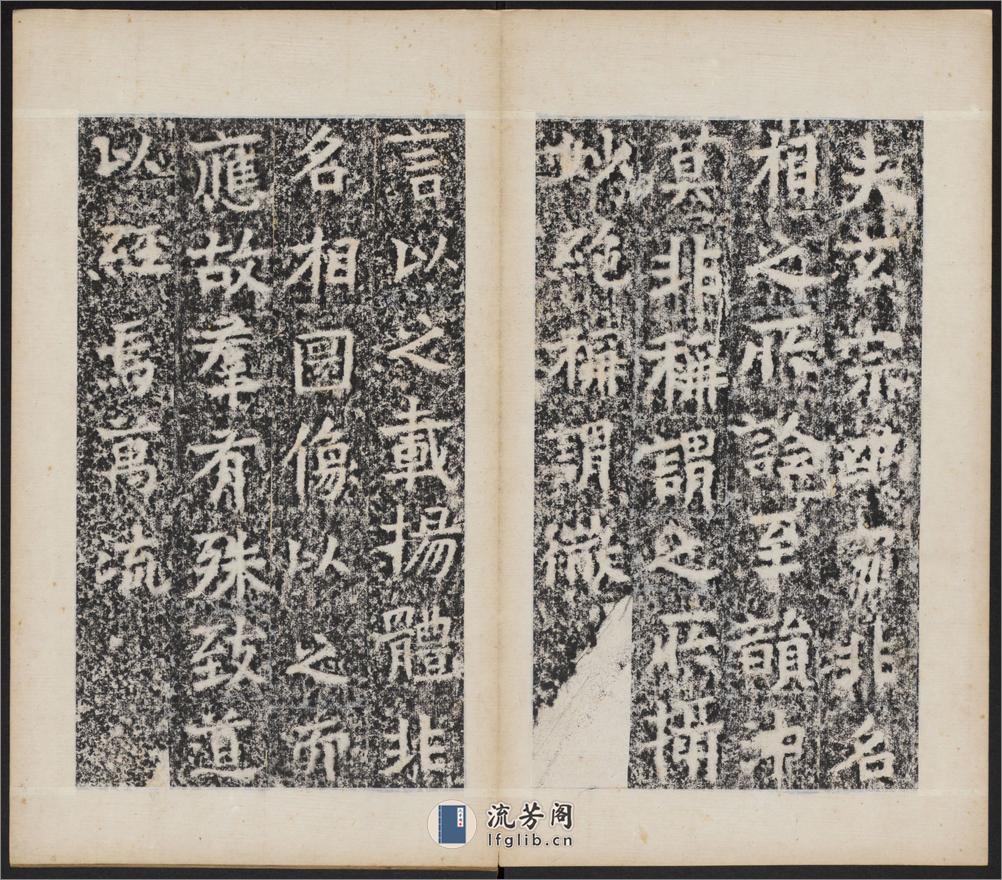 夫玄宗幽寂非名
相之所詮至韻沖
莫非稱謂之所攝
妙絕稱謂微
言以之載揚體非
名相圖像以之而
應故羣有殊致道
以經焉萬流
流芳阁
lfglib.cn